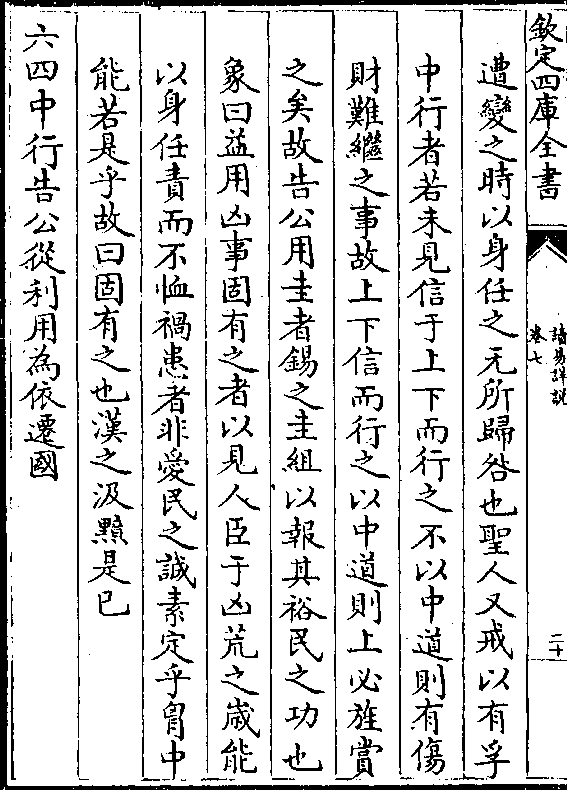 欽定四庫全書
讀易詳說
卷七
二十
遭變之時以身任之无所歸咎也聖人又戒以有孚
中行者若未見信于上下而行之不以中道則有傷
財難繼之事故上下信而行之以中道則上必旌賞
之矣故告公用圭者錫之圭組以報其裕民之功也
象曰益用凶事固有之者以見人臣于凶荒之歳能
以身任責而不恤禍患者非愛民之誠素定乎胷中
能若是乎故曰固有之也漢之汲黯是已
六四中行告公從利用為依遷國